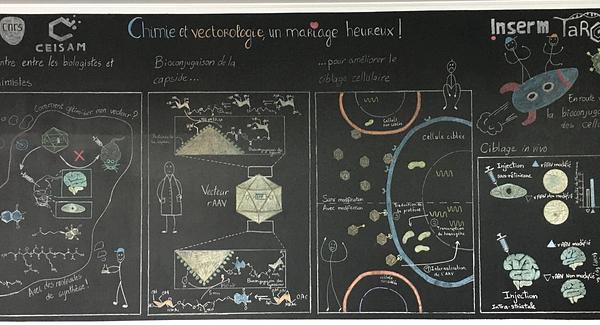 cnrs
CEISAM
Chimie et vectorologie, un mariage heureux !
Inserm
TaRG
ntre entre les biologistes et
imistes
Bioconjugaison de la
capside...
...pour améliorer le
ciblage cellulaire
En route v
la bioconjug
des cell
Comment optimiser mon vecteur ?
Avec des molécules
de synthèse !
Vecteur
rAAV
OAc
Cellule
non ciblée
Cellule ciblée
Sans modification
Avec modification
Traduction de
la protéine
Transcription du
transgène
Internalisation
de l'AAV
Ciblage in vivo
Injection
sous-rétinienne
rAAV modifié
rAAV Non modifié
Injection
Intra-striatale
rAAV modifié
rAAV Non modifié